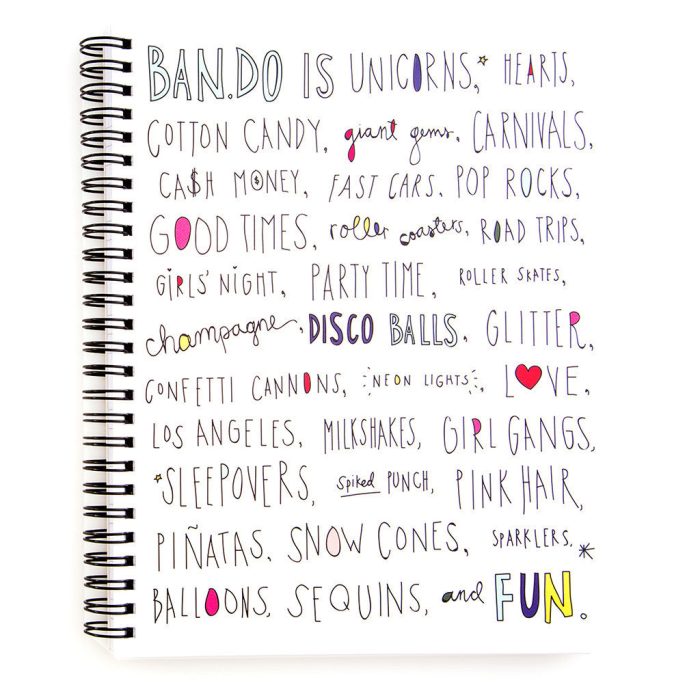 BAN.DO IS UNICORNS, HEARTS,
COTTON CANDY, giant gems, CARNIVALS,
CA$H MONEY, FAST CARS, POP ROCKS,
GOOD TIMES, roller coasters, ROAD TRIPS,
GiRLS' NiGHT, PARTY TIME, ROLLER SKATES,
champagne, DISCO BALLS, GLITTER,
CONFETTI CANNONS, NEON LIGHTS, LOVE,
LOS ANGELES, MILKSHAKES, GIRL GANGS,
SLEEPOVERS, Spiked PUNCH, PINK HAIR,
PIÑATAS, SNOW CONES, SPARKLERS,
BALLOONS, SEQUINS, and FUN.